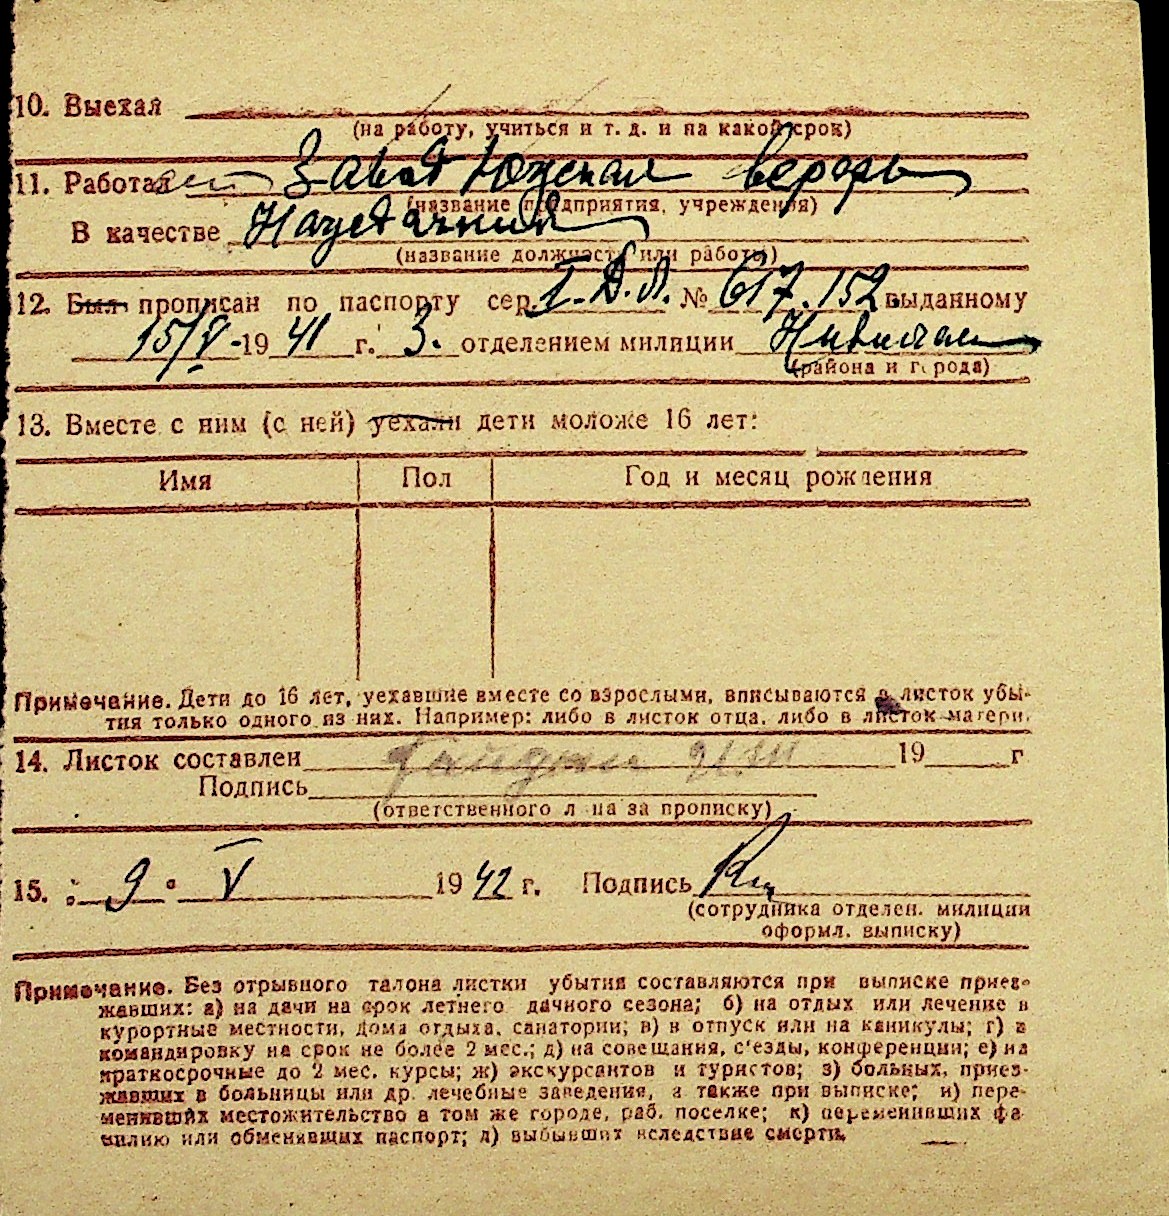 10. Выехал
(на работу, учиться и т. д. и на какой срок)
11. Работал Завод Южская верфь
(название предприятия, учреждения)
В качестве
(название должности или работы)
12. Был прописан по паспорту сер. № 617.152 выданному
15/V-1941 г. 3. отделением милиции
(района и города)
13. Вместе с ним (с ней) уехали дети моложе 16 лет:
Имя Пол Год и месяц рождения
Примечание. Дети до 16 лет, уехавшие вместе со взрослыми, вписываются в листок убы-
тия только одного из них. Например: либо в листок отца, либо в листок матери.
14. Листок составлен 19 г
Подпись
(ответственного лица за прописку)
15. 9 V 1942 г. Подпись
(сотрудника отделен. милиции
оформл. выписку)
Примечание. Без отрывного талона листки убытия составляются при выписке приез-
жавших: а) на дачи на срок летнего дачного сезона; б) на отдых или лечение в
курортные местности, дома отдыха, санатории; в) в отпуск или на каникулы; г) в
командировку на срок не более 2 мес.; д) на совещания, с'езды, конференции; е) на
краткосрочные до 2 мес. курсы; ж) экскурсантов и туристов; з) больных, приез-
жавших в больницы или др. лечебные заведения, а также при выписке; и) пере-
менивших местожительство в том же городе, раб. поселке; к) переменивших фа-
милию или обменявших паспорт; л) выбывших вследствие смерти.